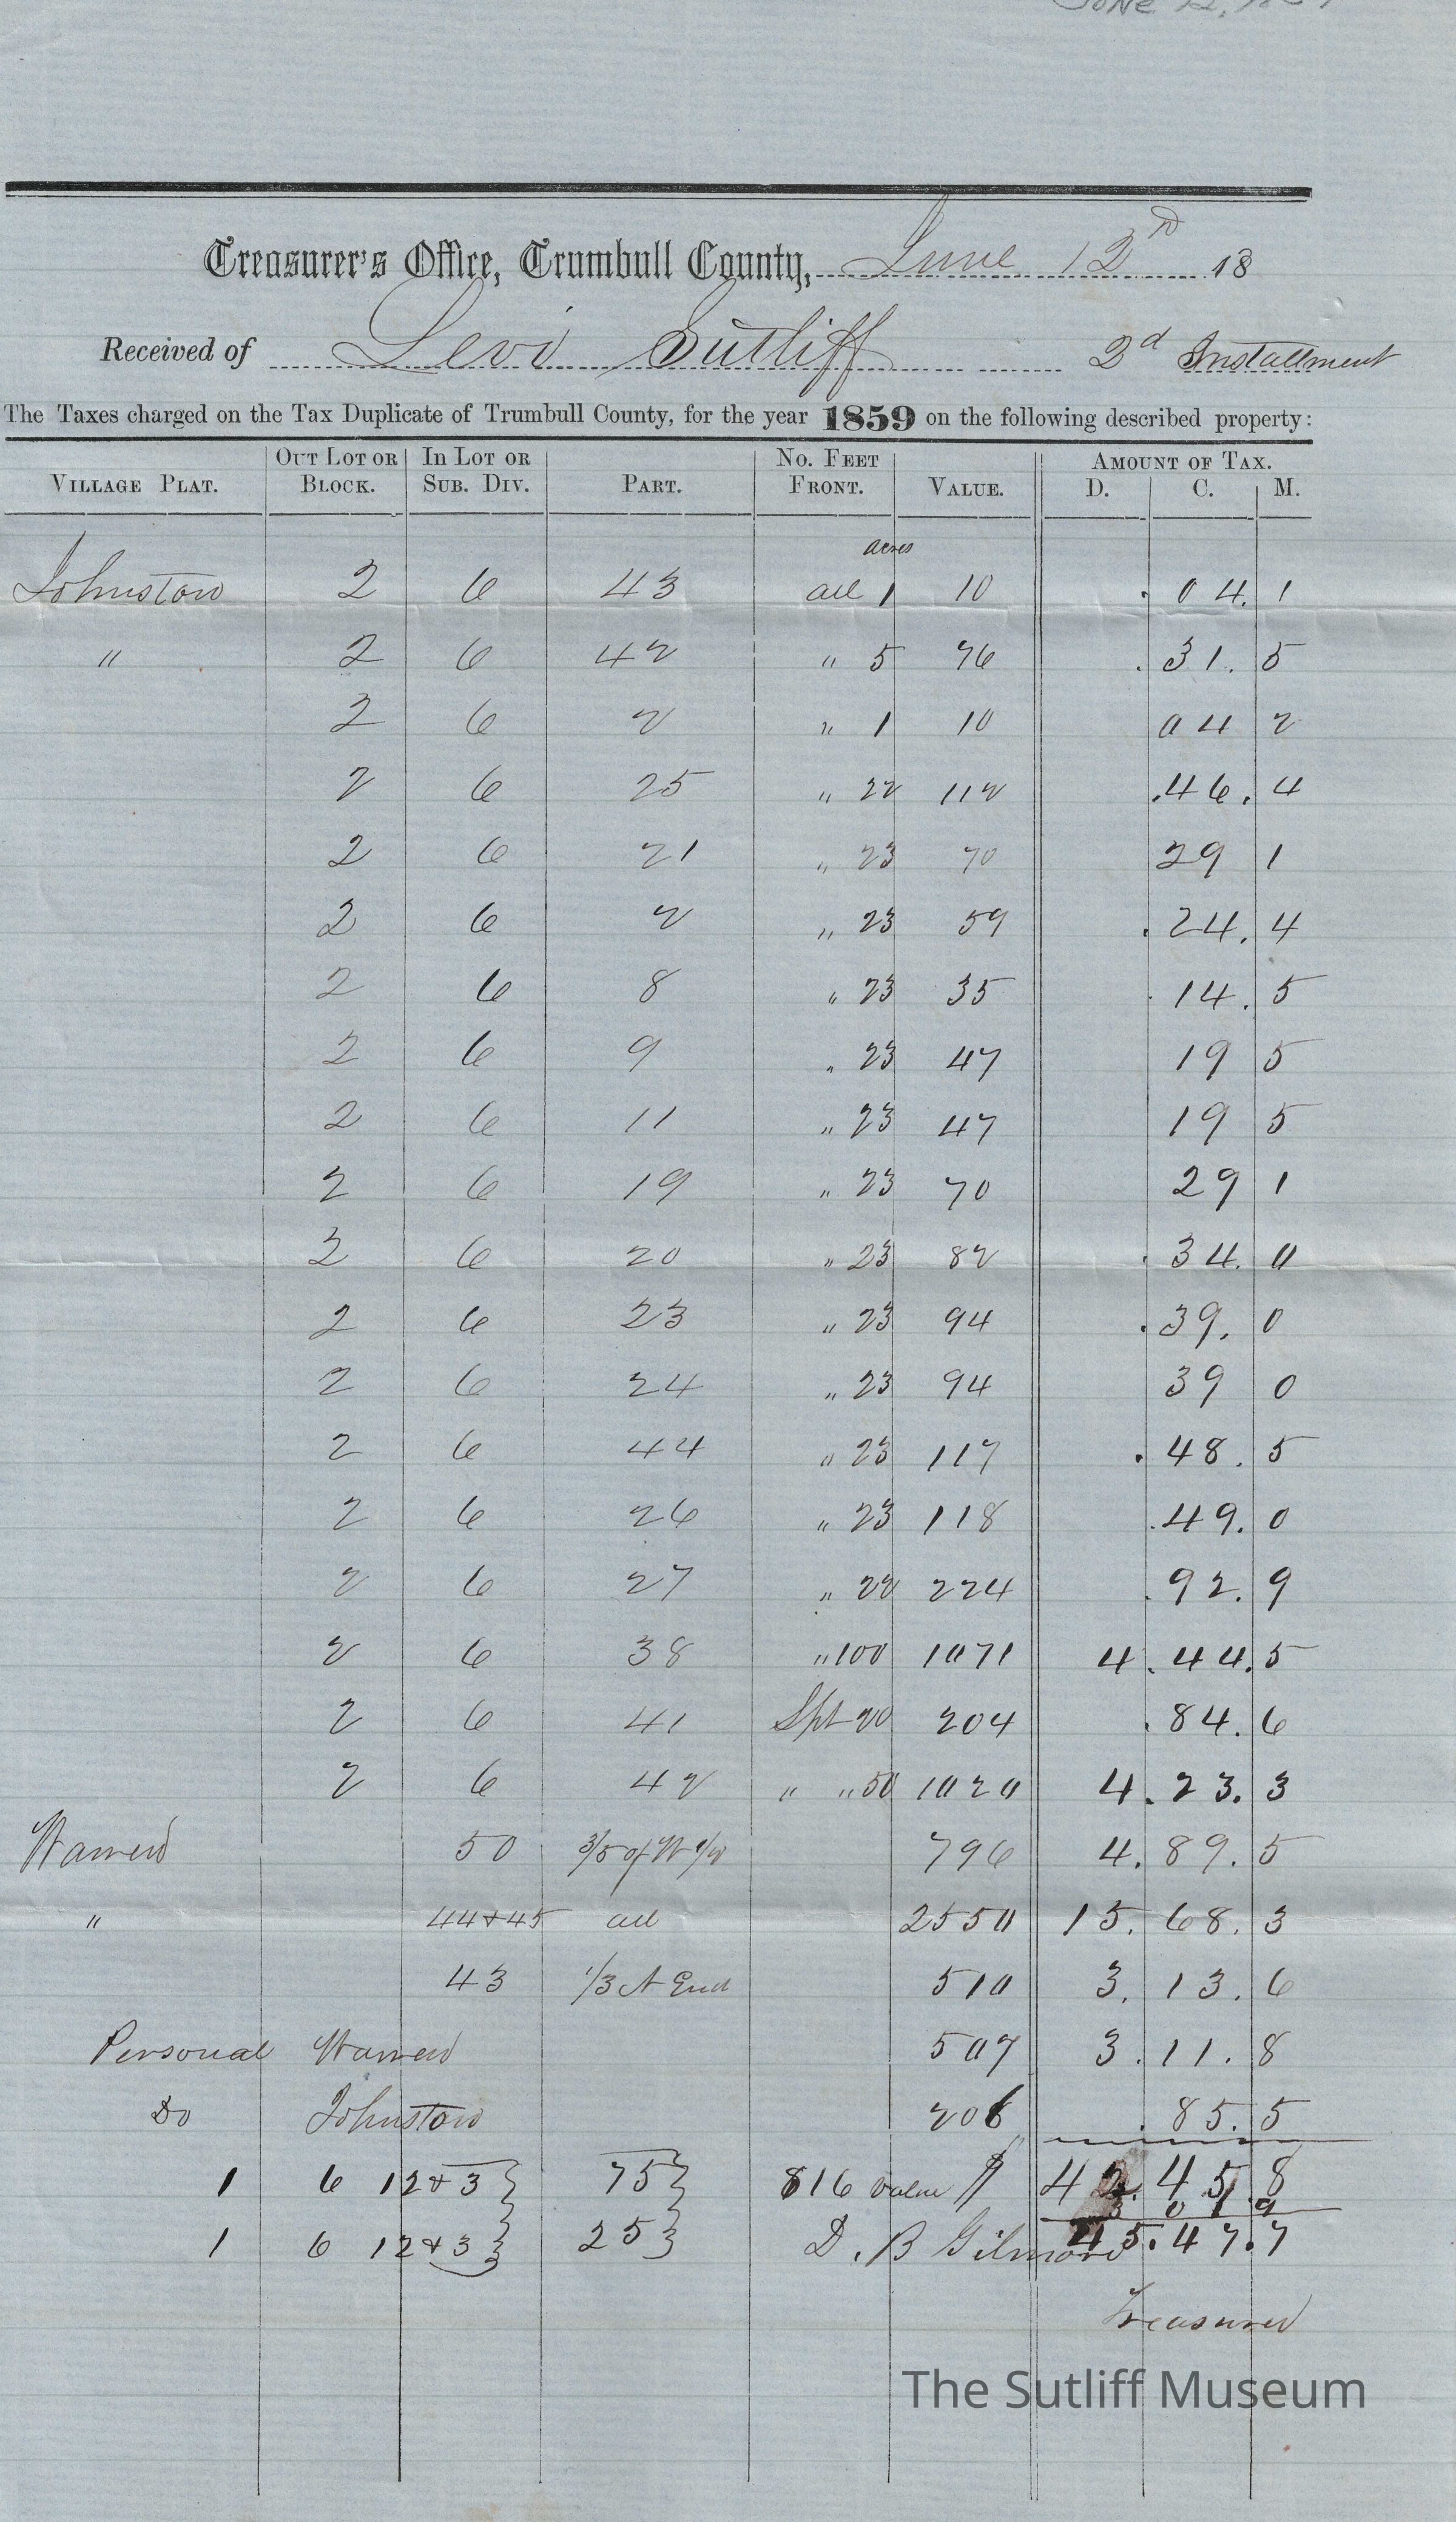 June 12, 18
Treasurer's Office, Trumbull County, June 12th 18
Received of Levi Sutliff 2d Installment
The Taxes charged on the Tax Duplicate of Trumbull County, for the year 1859 on the following described property:
VILLAGE PLAT. OUT LOT OR BLOCK. IN LOT OR SUB. DIV. PART. NO. FEET FRONT. VALUE. AMOUNT OF TAX. D. C. M.
acres
Johnston 2 6 43 all 1 10 . 04. 1
" 2 6 42 " 5 76 . 31. 5
2 6 2 " 1 10 04 2
2 6 25 " 22 112 .46. 4
2 6 21 " 23 70 29 1
2 6 2 " 23 59 . 24. 4
2 6 8 " 23 35 . 14. 5
2 6 9 " 23 47 19 5
2 6 11 " 23 47 19 5
2 6 19 " 23 70 29 1
2 6 20 " 23 82 . 34. 0
2 6 23 " 23 94 . 39. 0
2 6 24 " 23 94 39 0
2 6 44 " 23 117 . 48. 5
2 6 26 " 23 118 . 49. 0
2 6 27 " 22 224 . 92. 9
2 6 38 " 100 1071 4. 44. 5
2 6 41 Spt 20 204 . 84. 6
2 6 42 " " 50 1020 4. 23. 3
Warren 50 3/5 of W 1/2 796 4. 89. 5
" 44+45 all 2550 15. 68. 3
43 1/3 N End 510 3. 13. 6
Personal Warren 507 3. 11. 8
Do Johnston 206 . 85. 5
1 6 12+3 } 75 } 816 value $ 42. 45 8
3 01 9
1 6 12+3 } 25 } D. B Gilmore 45. 47. 7
Treasurer
The Sutliff Museum